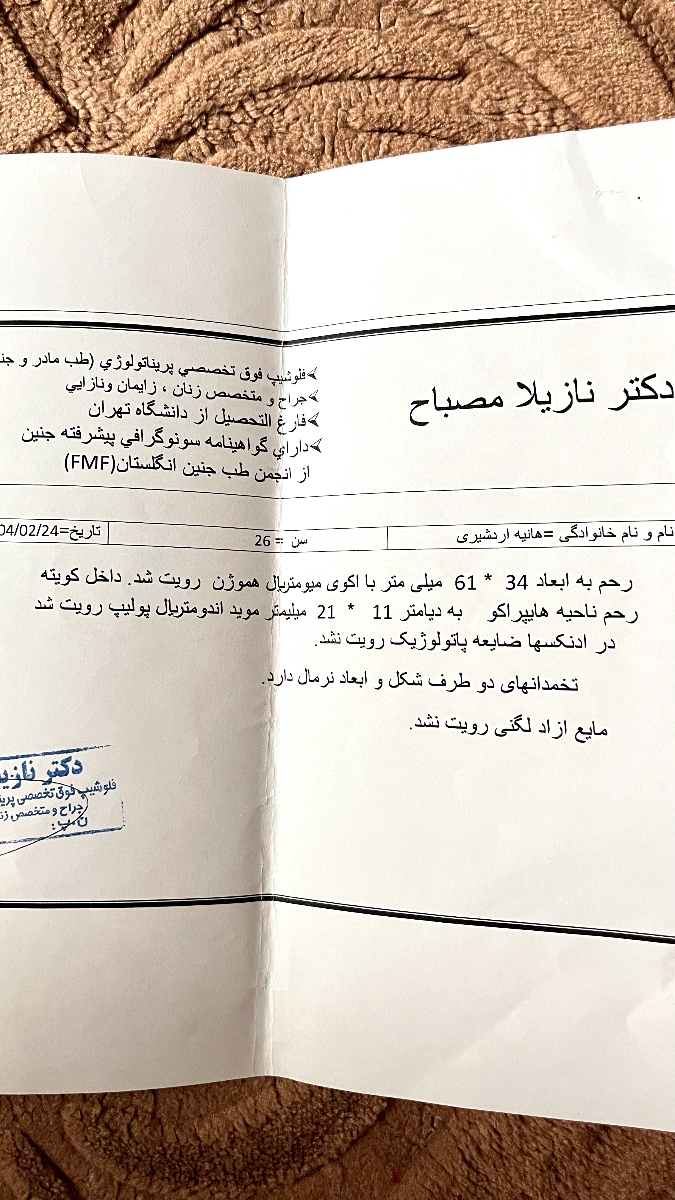 دکتر نازیلا مصباح
➢فلوشیپ فوق تخصصي پریناتولوژي (طب مادر و جنـ
➢جراح و متخصص زنان ، زایمان ونازایي
➢فارغ التحصیل از دانشگاه تهران
➢داراي گواهینامه سونوگرافي پیشرفته جنین
از انجمن طب جنین انگلستان(FMF)
نام و نام خانوادگی =هانیه اردشیری سن = 26 تاریخ=04/02/24
رحم به ابعاد 34 * 61 میلی متر با اکوی میومتریال هموژن رویت شد. داخل کویته
رحم ناحیه هایپراکو به دیامتر 11 * 21 میلیمتر موید اندومتریال پولیپ رویت شد
در ادنکسها ضایعه پاتولوژیک رویت نشد.
تخمدانهای دو طرف شکل و ابعاد نرمال دارد.
مایع ازاد لگنی رویت نشد.
دکتر نازیـ
فلوشیپ فوق تخصصی پریـ
جراح و متخصص زنـ
ن.پ: